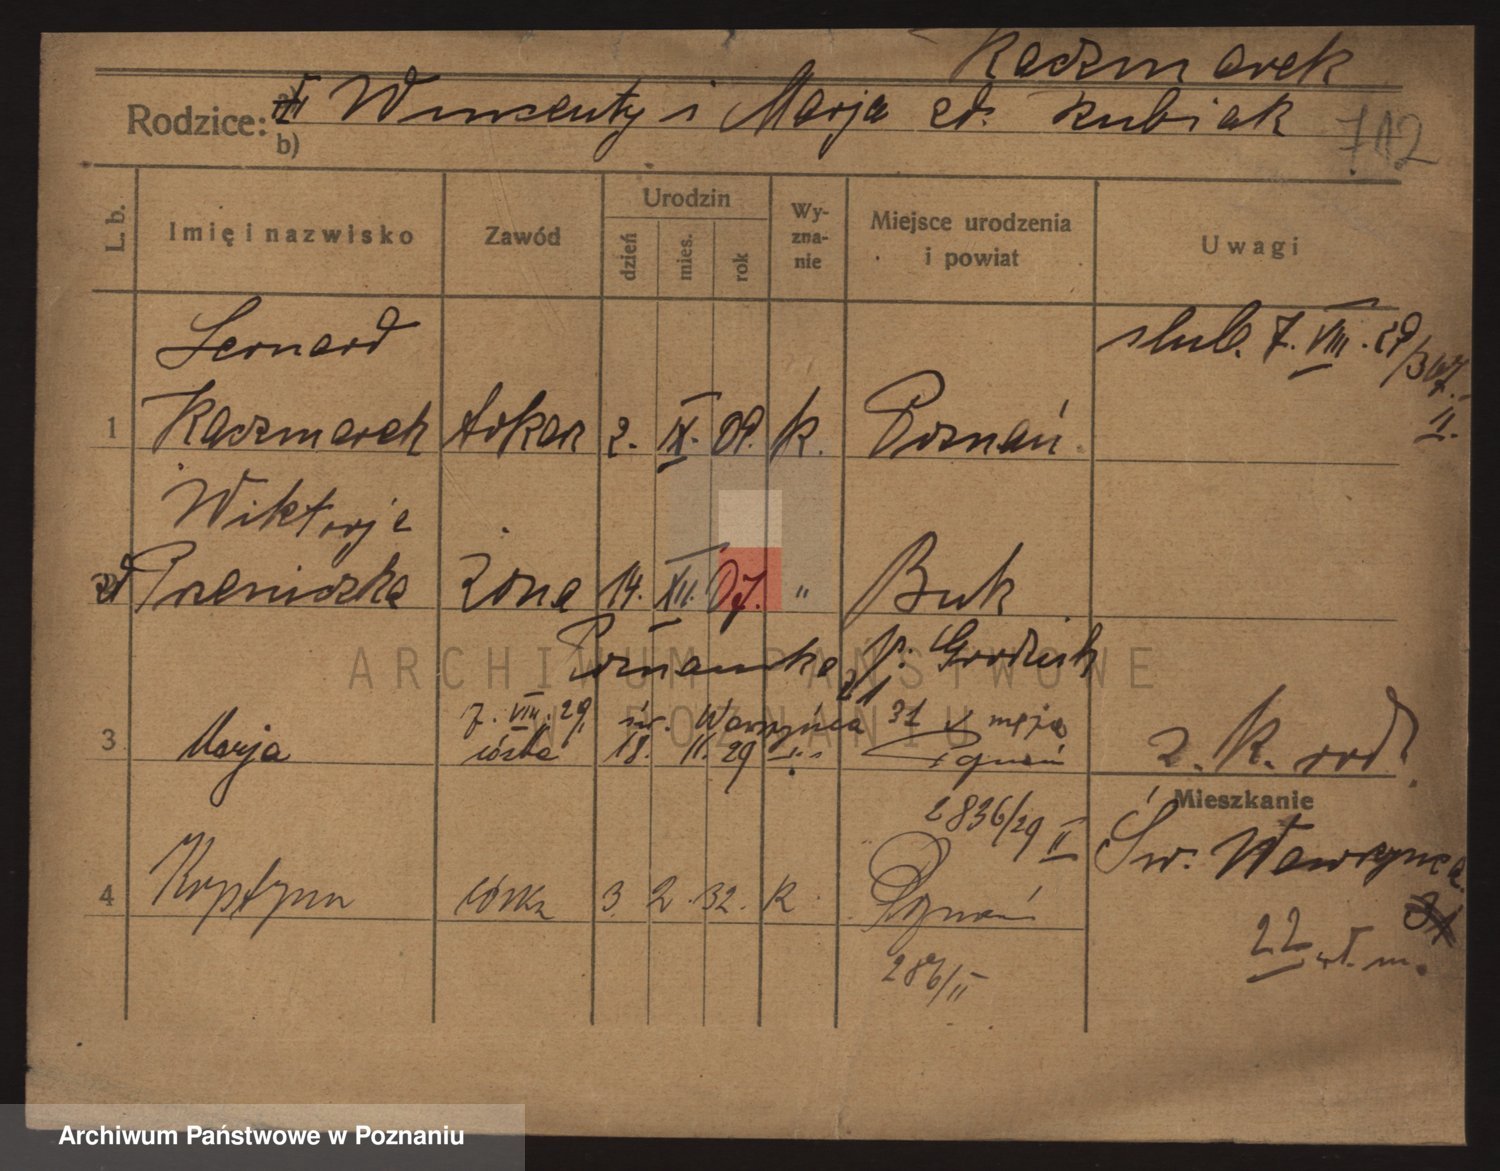 Kaczmarek
Rodzice: a) Wincenty i Marja zd. Kubiak
b)
712
L. b.
Imię i nazwisko
Zawód
Urodzin
dzień
mies.
rok
Wy-
zna-
nie
Miejsce urodzenia
i powiat
Uwagi
Leonard
ślub. 7. VIII. 29
1 Kaczmarek tokarz 2. IX. 09. k. Poznań.
II.
Wiktorja
zd Pszeniczka żona 14. XII. 07. " Buk
Poznanka p. Grodzisk
7. VIII. 29 św. Wawrzyńca 31 męża
3 Marja córka 18. 11. 29 Poznań
z. k. rod.
2836/29 II
Mieszkanie
Św. Wawrzyńca
31
4 Krystyna córka 3. 2. 32. k. Poznań
22 wł. m.
286/II
ARCHIWUM PAŃSTWOWE
W POZNANIU
Archiwum Państwowe w Poznaniu